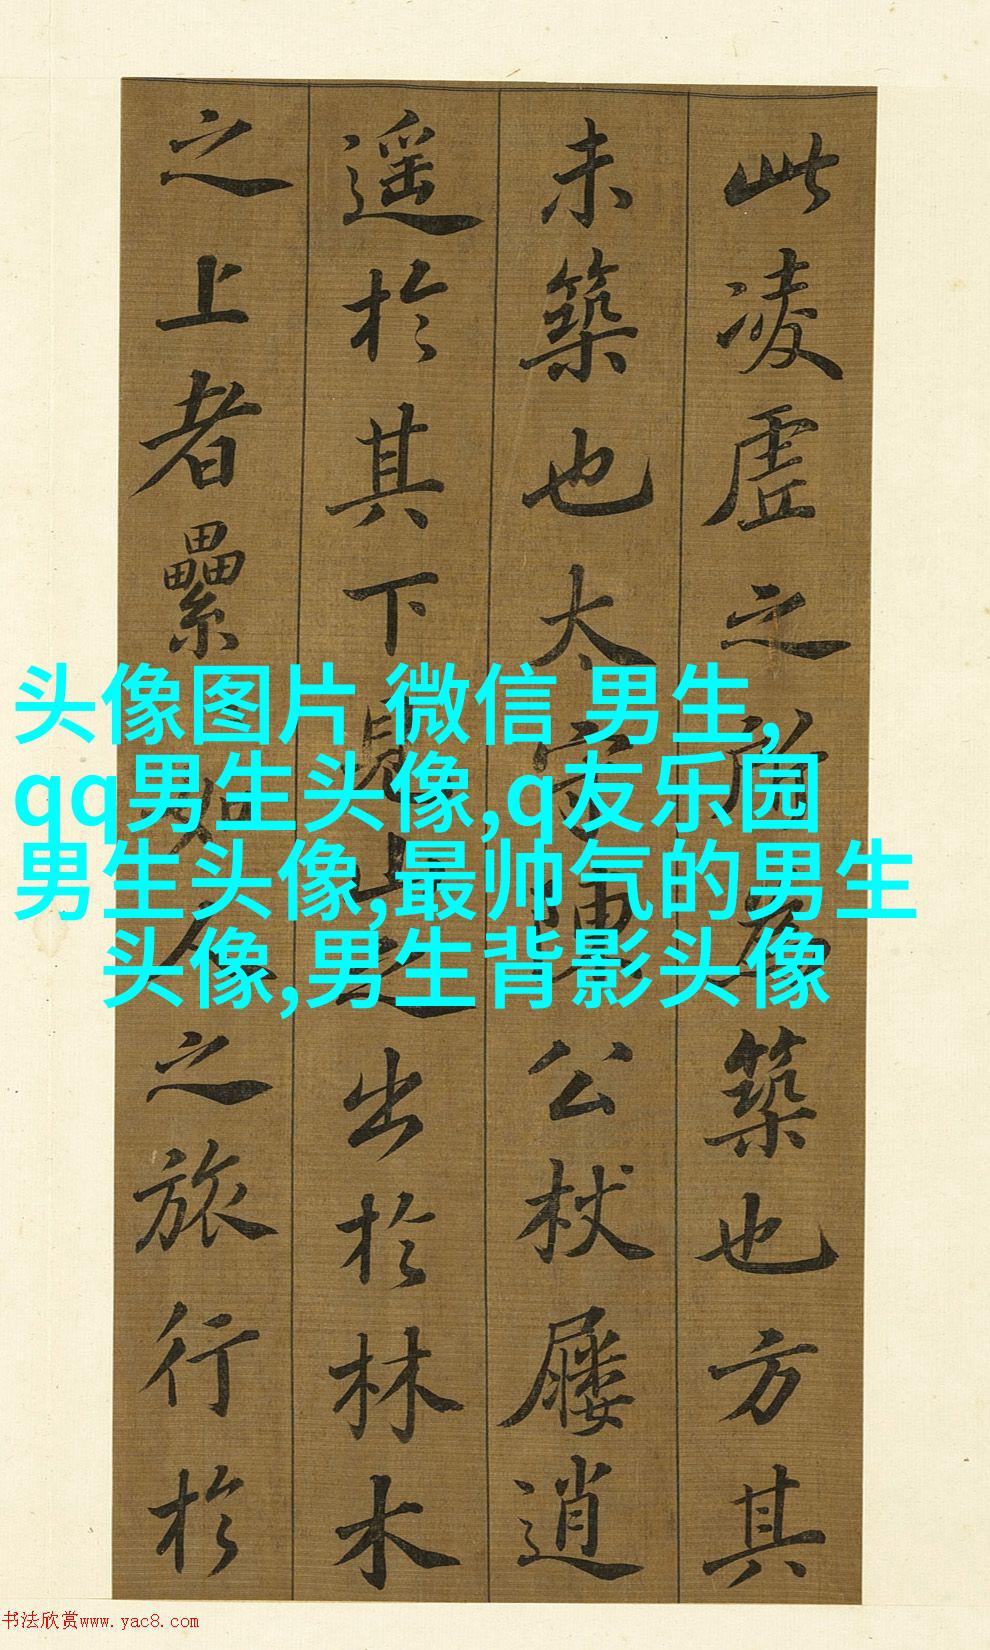 此凌虛之所為築也方其
未築也太守陳公杖屨逍
遥於其下見山之出於林木
之上者纍如人之旅行於
头像图片 微信 男生,
qq男生头像,q友乐园
男生头像,最帅气的男生
头像,男生背影头像
书法欣赏www.yac8.com